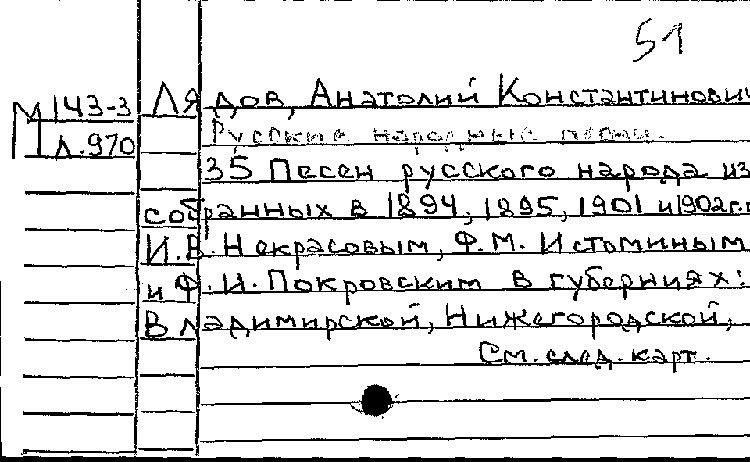 51
М 143-3 Лядов, Анатолий Константинович
Л.970 Русские народные песни.
35 Песен русского народа из
собранных в 1894, 1895, 1901 и 1902 г.г
И.В. Некрасовым, Ф.М. Истоминым
и Ф.И. Покровским в губерниях:
Владимирской, Нижегородской,
См. след. карт.